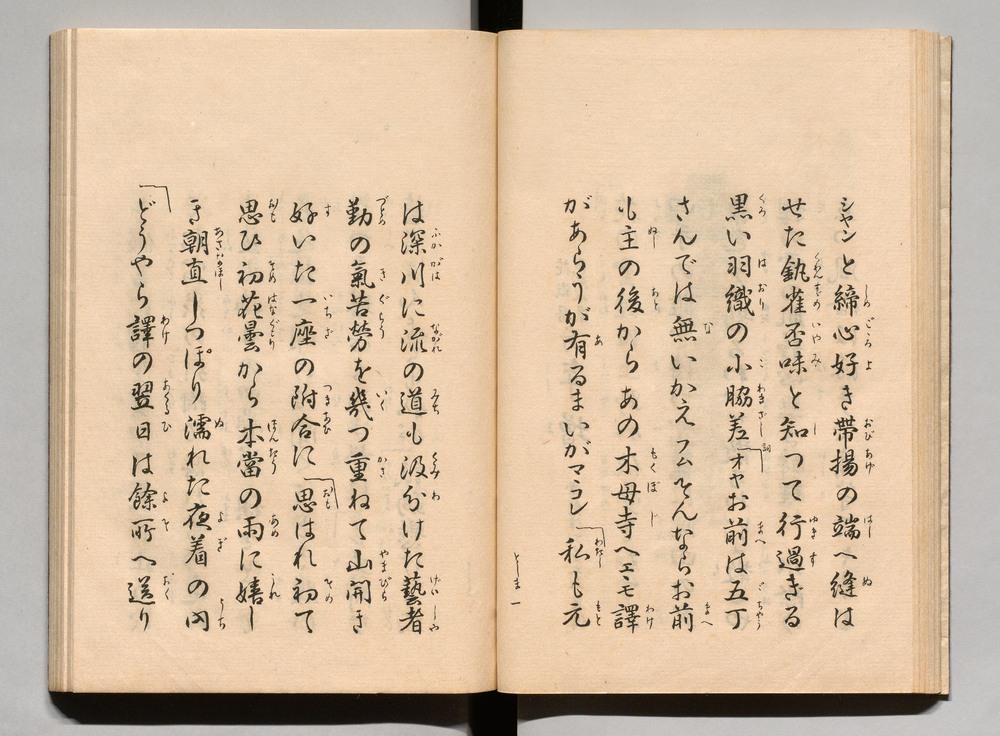 シヤンと締心好き帶揚の端へ縫は
せた釻雀否味と知つて行過ぎる
黒い羽織の小脇差「オヤお前は五丁
さんでは無いかえフムそんならお前
も主の後からあの木母寺へエモ譯
があらうが有るまいがマヨシ「私も元
とま一
は深川に流の道も汲分けた藝者
勤の氣苦勞を幾つ重ねて山開き
好いた一座の附合に「思はれ初て
思ひ初花曇から本當の雨に嬉し
き朝直しつぽり濡れた夜着の内
「どうやら譯の翌日は餘所へ送り